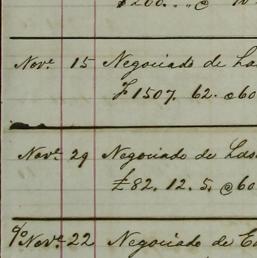 £200. . „ @
Nov.e 15 Negociado de
£ 1507. 62. @60
Nov.e 29 Negociado de
£82. 12. 5. @60
Nov.e 22 Negociado de